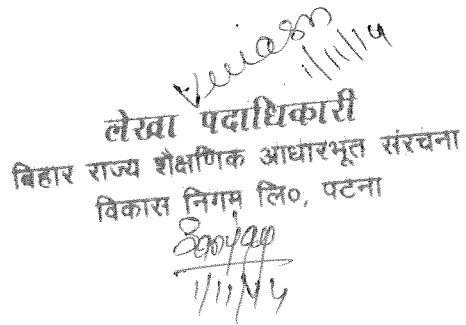 1/11/14
लेखा पदाधिकारी
बिहार राज्य शैक्षणिक आधारभूत संरचना
विकास निगम लि०, पटना
1/11/14